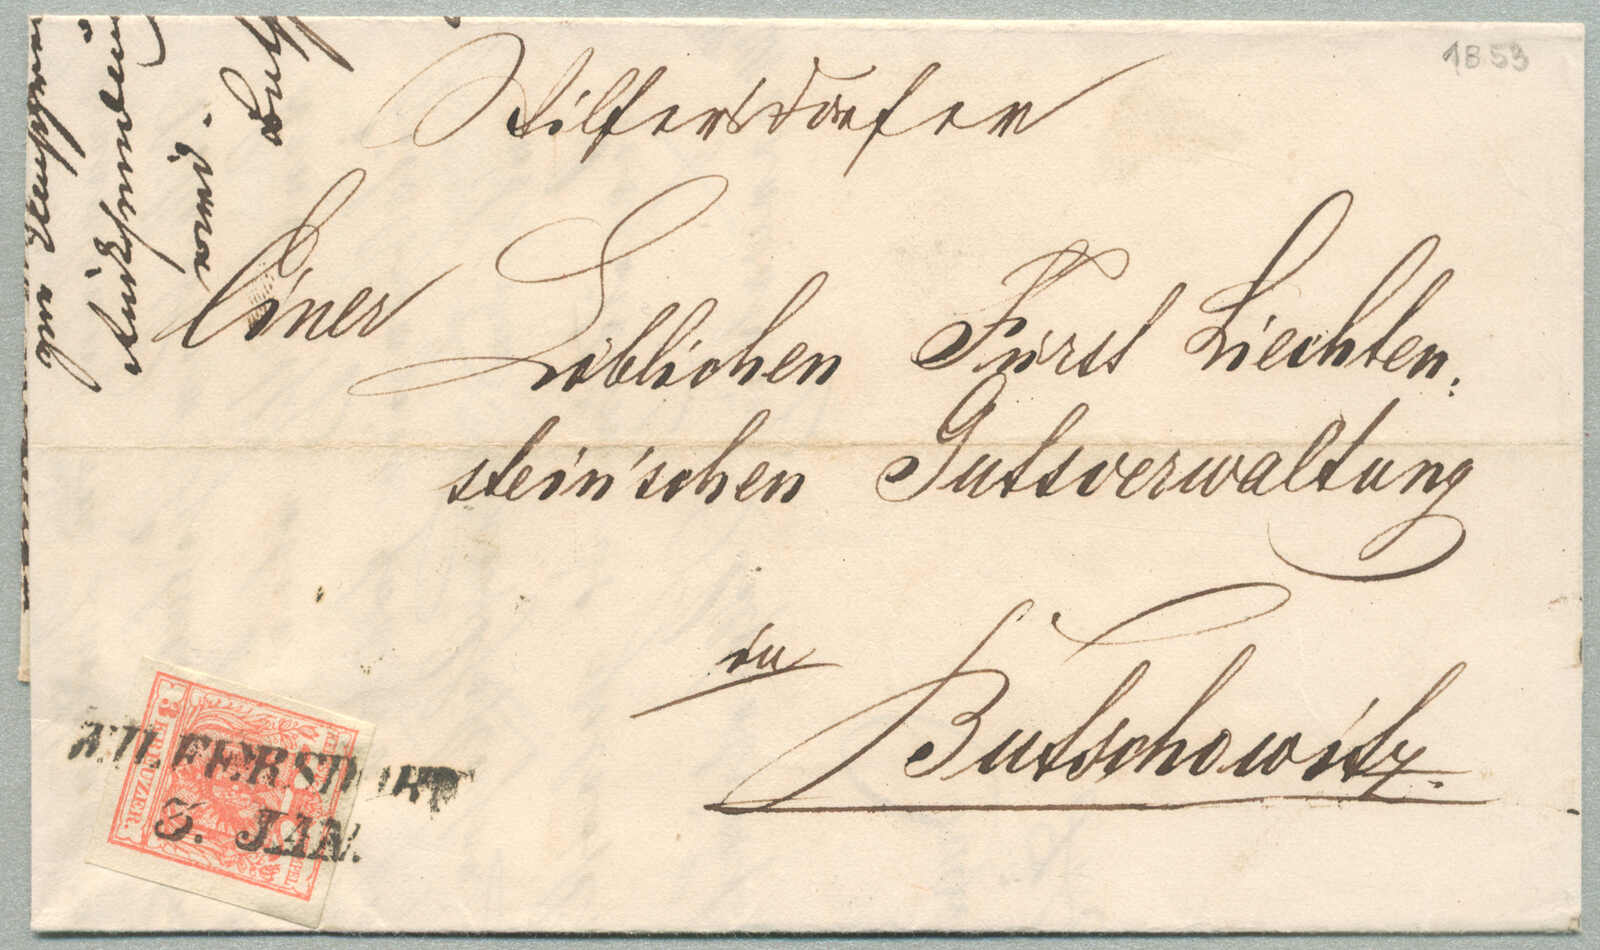 1853
Wilfersdorfer
Einer Löblichen Fürst Liechten,
stein'schen Gutsverwaltung
in
Butschowitz.
3 KREUZER.
WILFERSDORF
3. JAN.